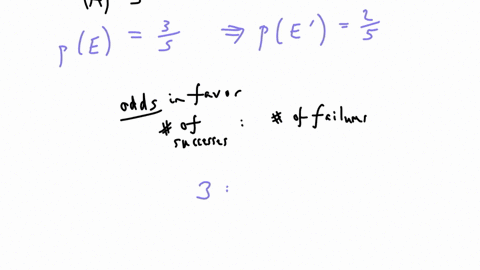 p(E) = 3/5 ⇒ p(E') = 2/5
odds in favor
# of successes : # of failures
3 :